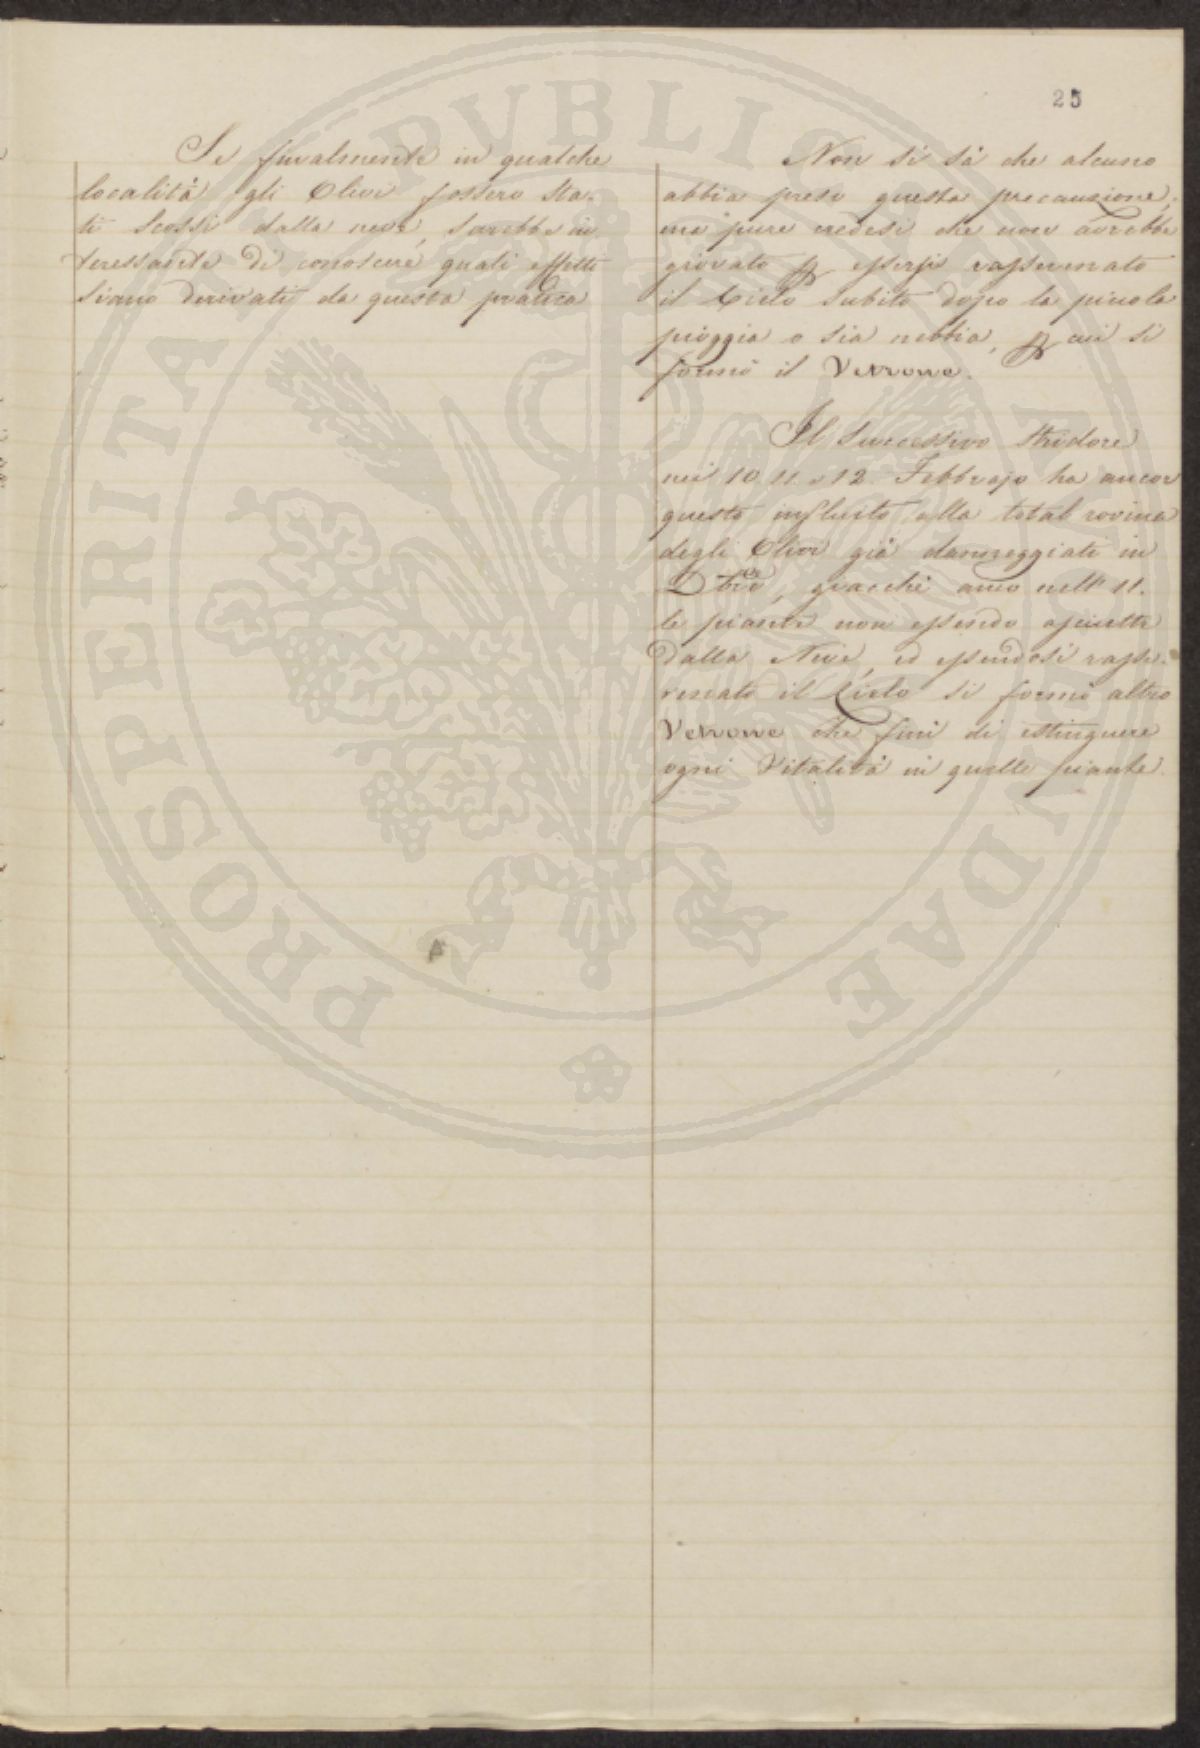 25
Se finalmente in qualche
località gli Olivi fossero sta-
ti scossi dalla neve, sarebbe in
teressante di conoscere quali effetti
siano derivati da questa pratica
Non si sà che alcuno
abbia preso questa precauzione,
ma pure credesi che non avrebbe
giovato ꝑ essersi rasserenato
il Cielo subito dopo la piccola
pioggia o sia nebbia, ꝑ cui si
formò il Vetrone.
Il successivo stridore
nei 10 11. e 12. Febbrajo ha ancor
questo influito alla total rovina
degli Olivi già danneggiati in
Xbre, giacchè anco nell' 11.
le piante non essendo asciutte
dalla Neve, ed essendosi rasse-
renato il Cielo si formò altro
Vetrone che finì di estinguere
ogni Vitalità in quelle piante.
PROSPERITA PVBLIC AVDAE